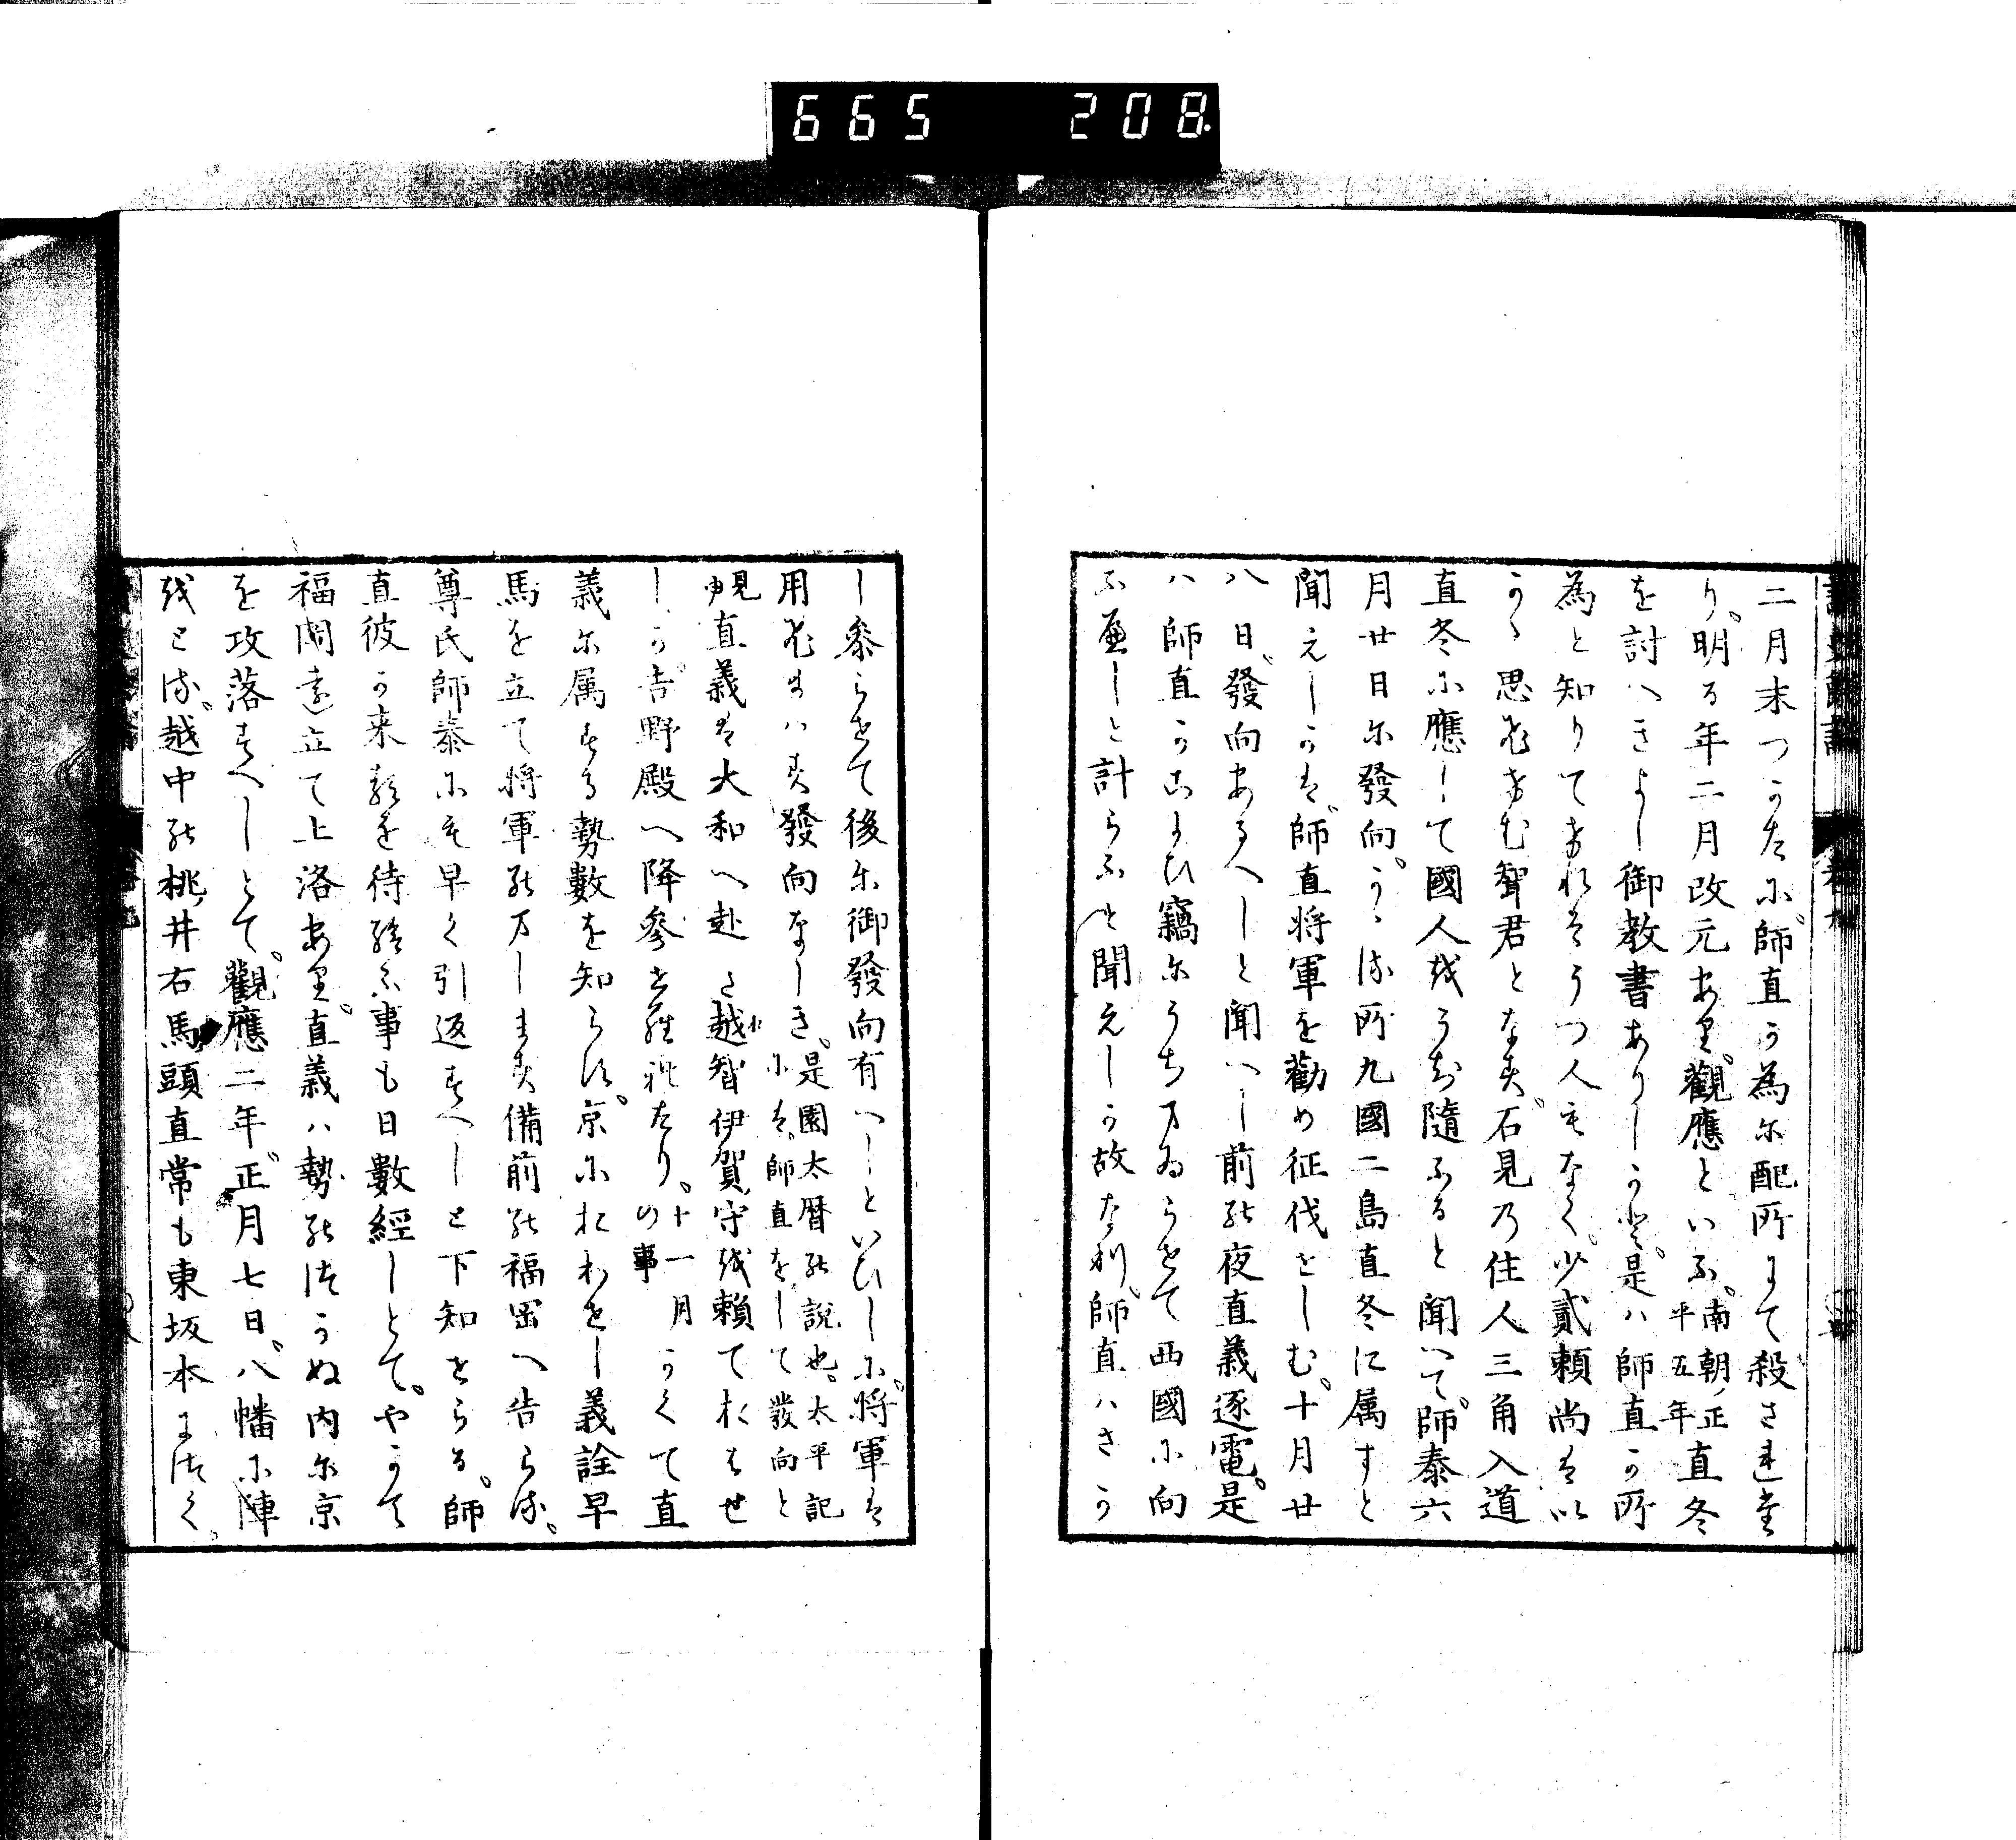 665 208.
二月末つかたに師直か為に配所にて殺された
り。明る年二月改元あり。觀應といふ。南朝ノ正平五年直冬
を討へきよし御教書ありしかと。是ハ師直か所
為と知りてけれはうつ人もなく。少貳賴尚は以
かゝ思ひけむ聟君となす。石見乃住人三角入道
直冬に應して國人をうち隨ふると聞いて。師泰六
月廿日に發向。かゝる所九國二島直冬に属すと
聞えしかは。師直將軍を勸め征伐せしむ。十月廿
八日。發向あるへしと聞へし前の夜直義逐電。是
ハ師直かこよひ竊にうちまゐらせて西國に向
ふへしと計らふと聞えしか故なり。師直ハさか
し參らせて後に御發向有へしといひしに。將軍は
用ひまハす發向なしき。是園太曆の說也。太平記には。師直をして發向と
見ゆ直義は大和へ赴き越智伊賀守を賴ておはせ
しか吉野殿へ降參せられたり。十一月の事かくて直
義に属する勢數を知らす。京におわせし義詮早
馬を立て將軍のまします備前の福岡へ告らる。
尊氏師泰にも早く引返すへしと下知せらる。師
直彼か来るを待給ふ事も日數經しとて。やかて
福岡を立て上洛あり。直義ハ勢のつかぬ内に京
を攻落すへしとて。觀應二年正月七日。八幡に陣
をとる。越中の桃井右馬頭直常も東坂本につく。